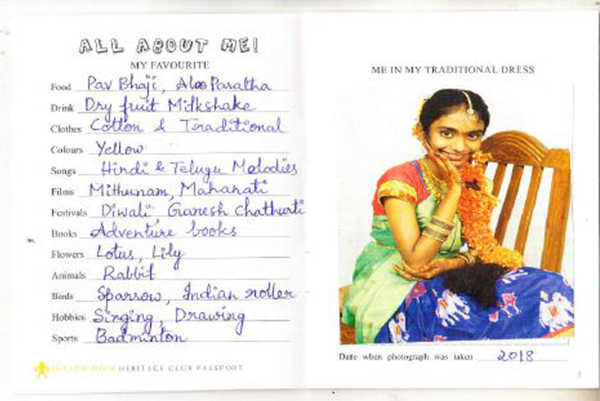 ALL ABOUT ME!
MY FAVOURITE
Food Pav Bhaji, Aloo Paratha
Drink Dry fruit Milkshake
Clothes Cotton & Traditional
Colours Yellow
Songs Hindi & Telugu Melodies
Films Mithunam, Mahanati
Festivals Diwali, Ganesh Chathurti
Books Adventure books
Flowers Lotus, Lily
Animals Rabbit
Birds Sparrow, Indian roller
Hobbies Singing, Drawing
Sports Badminton
HERITAGE CLUB PASSPORT
ME IN MY TRADITIONAL DRESS
Date when photograph was taken 2018